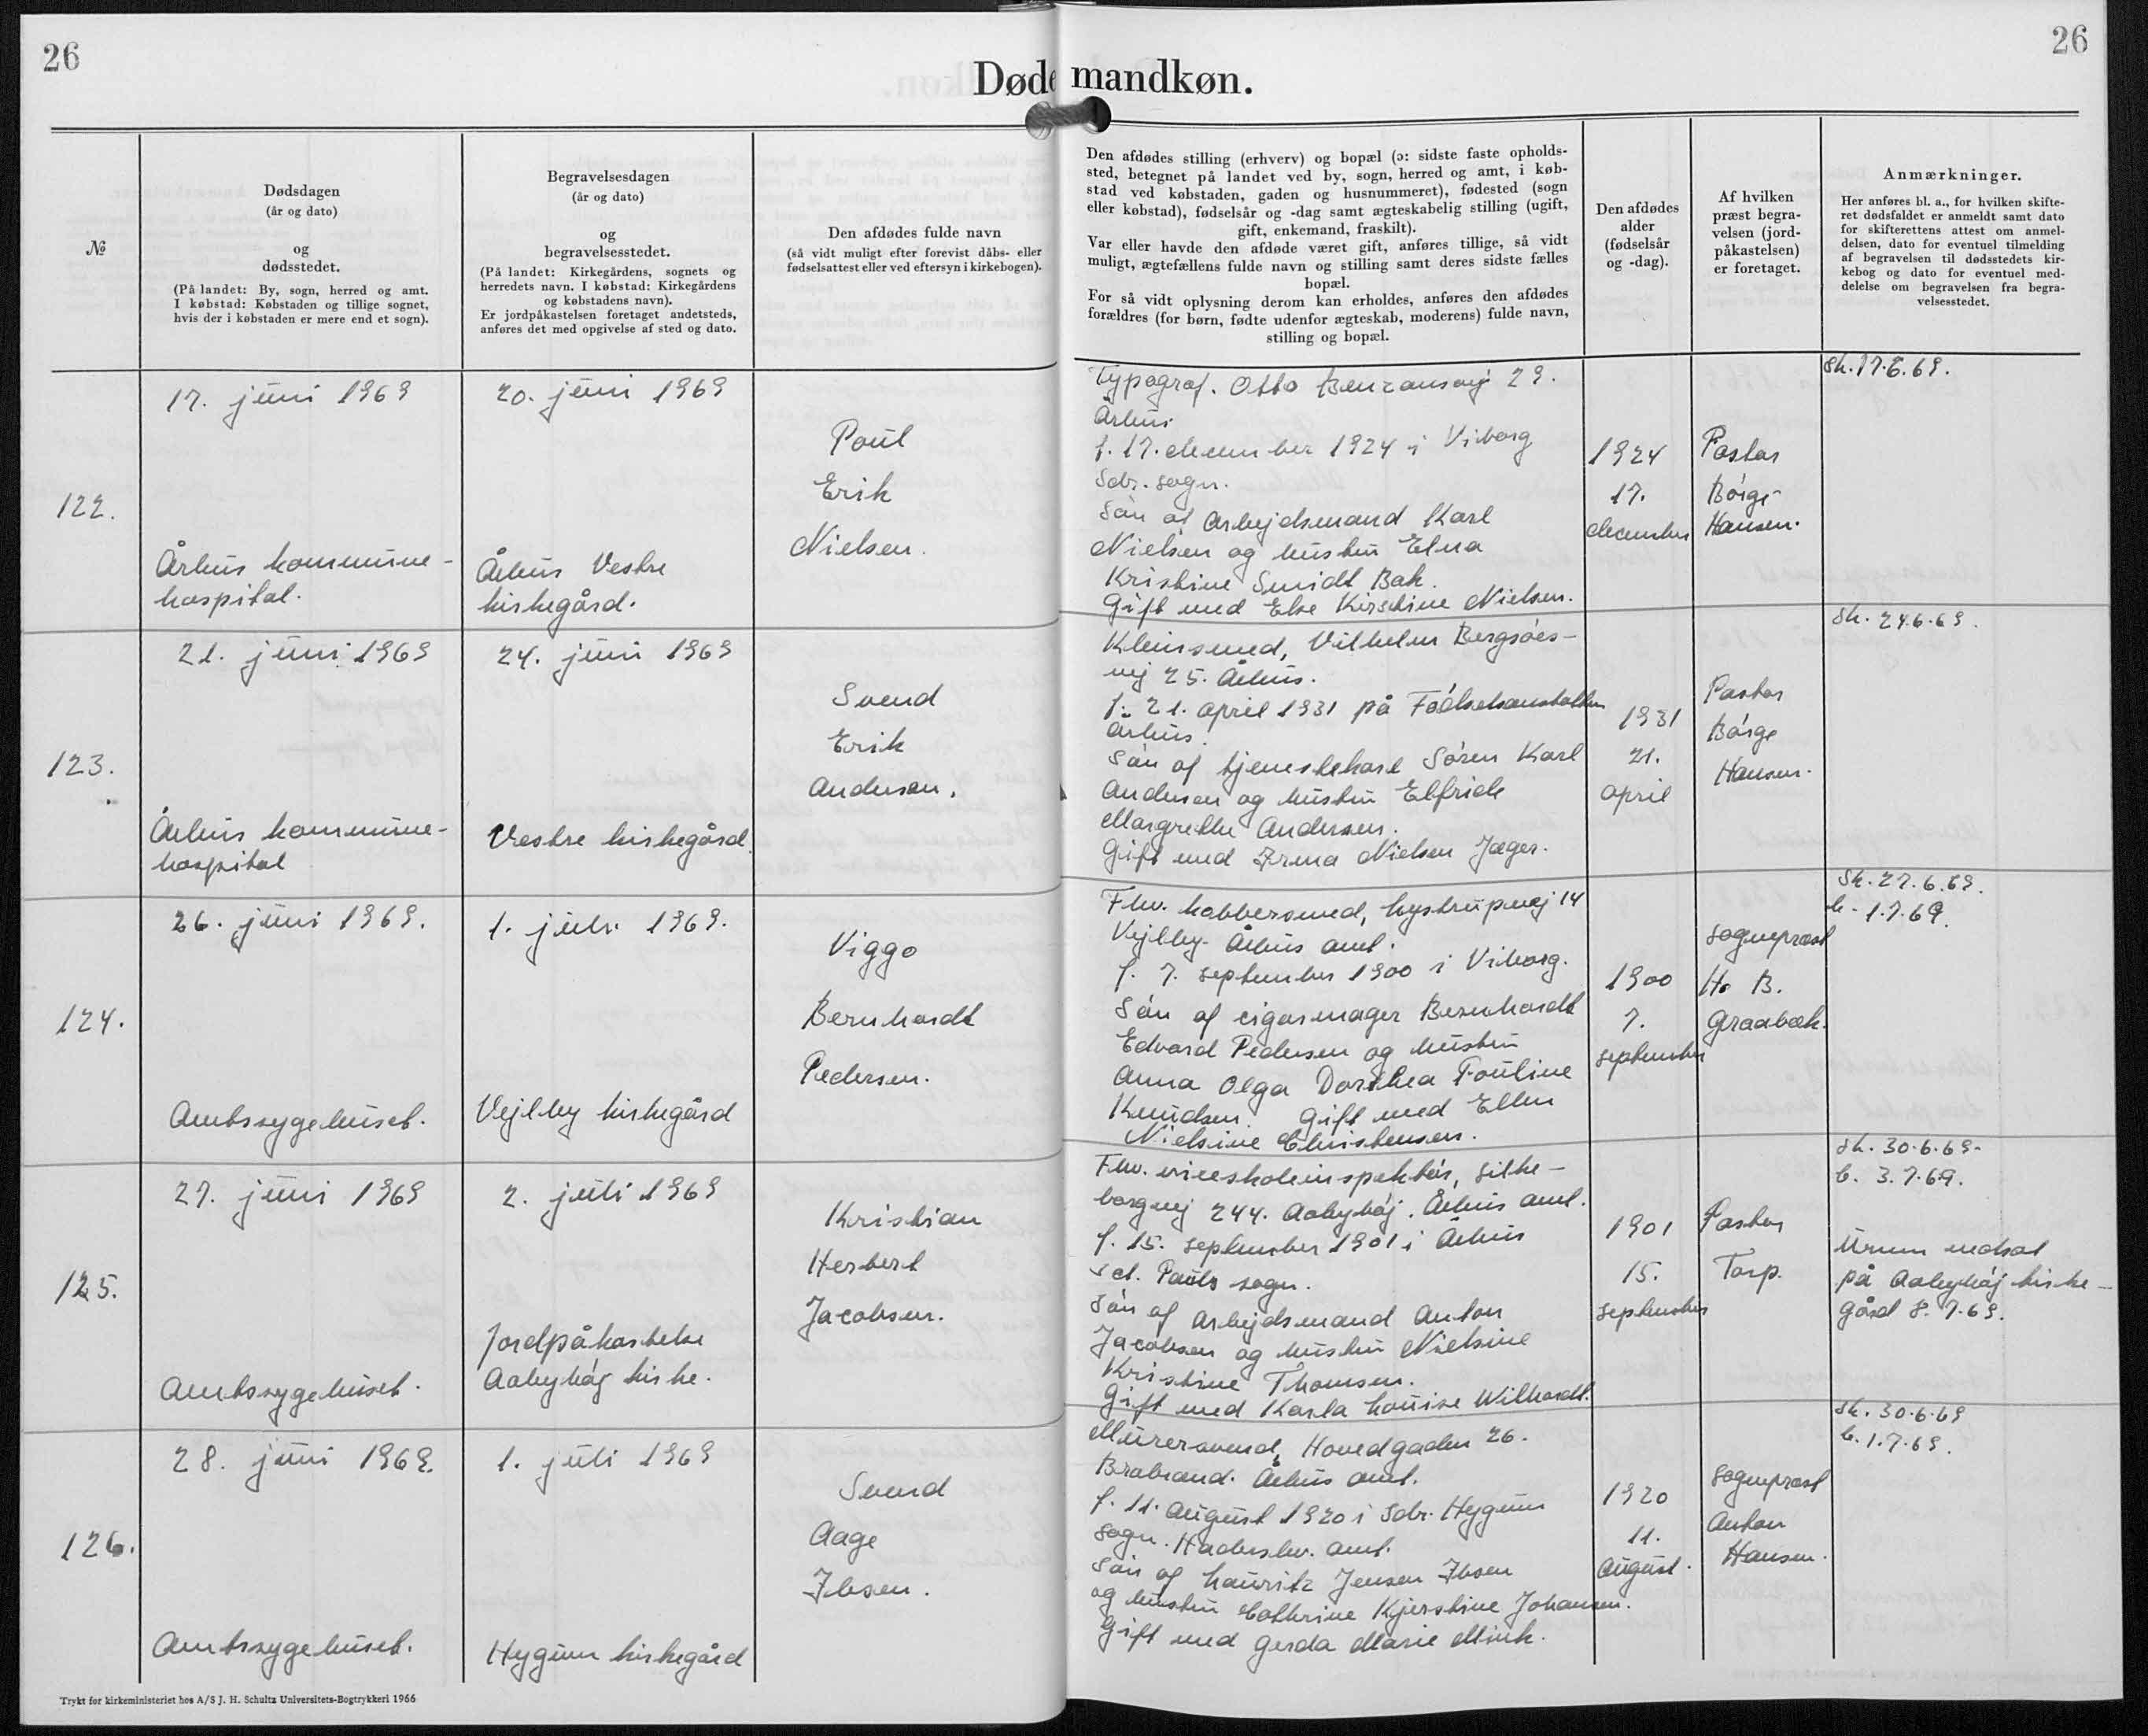 26
26
Døde mandkøn.
№
Dødsdagen
(år og dato)
og
dødsstedet.
(På landet: By, sogn, herred og amt.
I købstad: Købstaden og tillige sognet,
hvis der i købstaden er mere end et sogn).
Begravelsesdagen
(år og dato)
og
begravelsesstedet.
(På landet: Kirkegårdens, sognets og
herredets navn. I købstad: Kirkegårdens
og købstadens navn).
Er jordpåkastelsen foretaget andetsteds,
anføres det med opgivelse af sted og dato.
Den afdødes fulde navn
(så vidt muligt efter forevist dåbs- eller
fødselsattest eller ved eftersyn i kirkebogen).
Den afdødes stilling (erhverv) og bopæl (ɔ: sidste faste opholds-
sted, betegnet på landet ved by, sogn, herred og amt, i køb-
stad ved købstaden, gaden og husnummeret), fødested (sogn
eller købstad), fødselsår og -dag samt ægteskabelig stilling (ugift,
gift, enkemand, fraskilt).
Var eller havde den afdøde været gift, anføres tillige, så vidt
muligt, ægtefællens fulde navn og stilling samt deres sidste fælles
bopæl.
For så vidt oplysning derom kan erholdes, anføres den afdødes
forældres (for børn, fødte udenfor ægteskab, moderens) fulde navn,
stilling og bopæl.
Den afdødes
alder
(fødselsår
og -dag).
Af hvilken
præst begra-
velsen (jord-
påkastelsen)
er foretaget.
Anmærkninger.
Her anføres bl. a., for hvilken skifte-
ret dødsfaldet er anmeldt samt dato
for skifterettens attest om anmel-
delsen, dato for eventuel tilmelding
af begravelsen til dødsstedets kir-
kebog og dato for eventuel med-
delelse om begravelsen fra begra-
velsesstedet.
122.
17. juni 1969
Århus kommune-
hospital.
20. juni 1969
Århus Vestre
kirkegård.
Poul
Erik
Nielsen.
Typograf. Otto Benzonsvej 29.
Århus
f. 17. december 1924 i Viborg
Sdr. sogn.
Søn af Arbejdsmand Karl
Nielsen og hustru Elna
Kristine Smidt Bak.
Gift med Else Kirstine Nielsen.
1924
17.
december
Pastor
Børge
Hansen.
Sk. 17.6.69.
123.
21. juni 1969
Århus kommune-
hospital
24. juni 1969
Vestre kirkegård
Svend
Erik
Andersen.
Kleinsmed, Vilhelm Bergsøes-
vej 25. Århus.
f. 21. april 1931 på Fødselsanstalten
Århus.
Søn af tjenestekarl Søren Karl
Andersen og hustru Elfride
Margrethe Andersen.
Gift med Irma Nielsen Jæger.
1931
21.
april
Pastor
Børge
Hansen.
Sk. 24.6.69.
124.
26. juni 1969.
Amtssygehuset.
1. juli 1969.
Vejlby kirkegård
Viggo
Bernhardt
Pedersen.
Fhv. kobbersmed, Lystrupvej 14
Vejlby. Århus amt.
f. 7. september 1900 i Viborg.
Søn af cigarmager Bernhardt
Edvard Pedersen og hustru
Anna Olga Dorthea Pouline
Knudsen. Gift med Ellen
Nielsine Christensen.
1900
7.
september
Sognepræst
H. B.
Graabæk.
Sk. 27.6.69.
b. 1.7.69.
125.
27. juni 1969
Amtssygehuset.
2. juli 1969
Jordpåkastelse
Aabyhøj kirke.
Kristian
Herbert
Jacobsen.
Fhv. viceskoleinspektør, Silke-
borgvej 244. Aabyhøj. Århus amt.
f. 15. september 1901 i Århus
Sct. Pauls sogn.
Søn af Arbejdsmand Anton
Jacobsen og hustru Nielsine
Kristine Thomsen.
Gift med Karla Louise Wilhardt.
1901
15.
september
Pastor
Torp.
Sk. 30.6.69.
b. 3.7.69.
Urnen nedsat
på Aabyhøj kirke-
gård 8.7.69.
126.
28. juni 1969.
Amtssygehuset.
1. juli 1969
Hygum kirkegård
Svend
Aage
Ibsen.
Murersvend, Hovedgaden 26.
Brabrand. Århus amt.
f. 11. August 1920 i Sdr. Hygum
sogn. Haderslev. amt.
Søn af Lauritz Jensen Ibsen
og hustru Cathrine Kjerstine Johansen.
Gift med Gerda Marie Mink.
1920
11.
August.
Sognepræst
Anton
Hansen.
Sk. 30.6.69
b. 1.7.69.
Trykt for kirkeministeriet hos A/S J. H. Schultz Universitets-Bogtrykkeri 1966